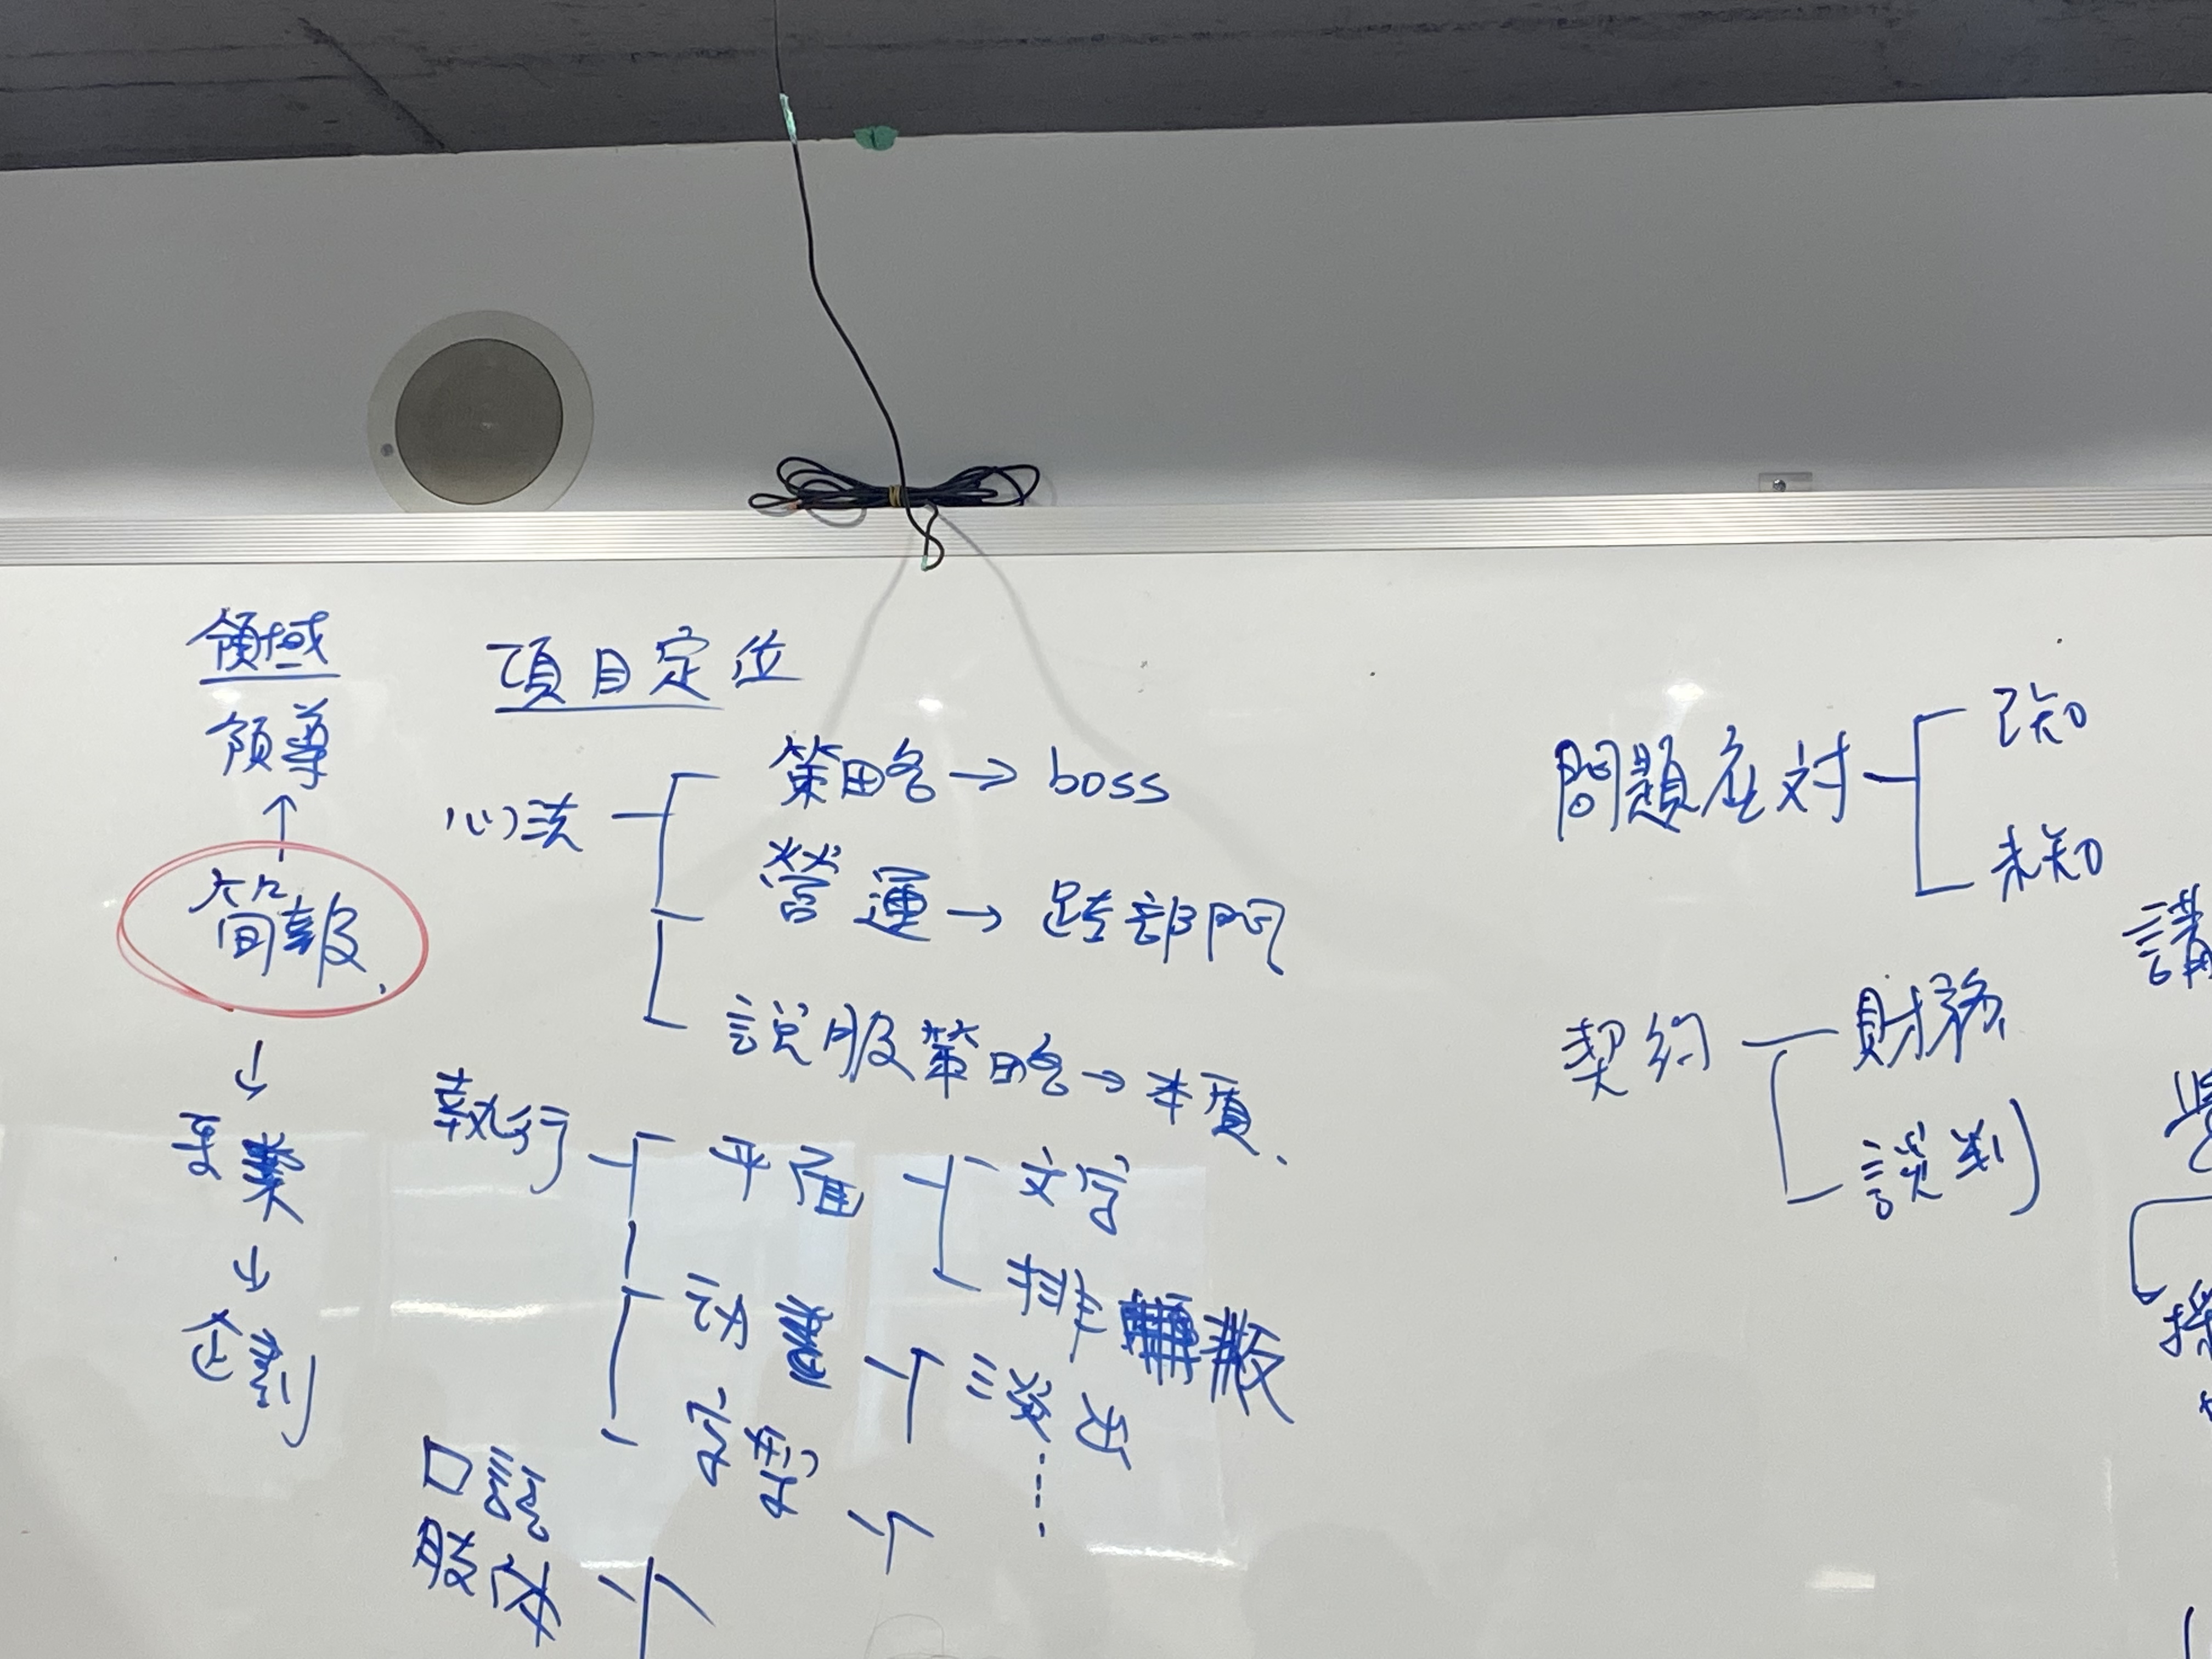 領域
領導
↑
簡報
↓
↓
企劃
項目定位
心法
策略 → boss
營運 → 跨部門
說服策略 → 本質
執行
平面
文字
排
動
淡出
定型
口說
肢体
問題应对
已知
未知
契約
財務
談判